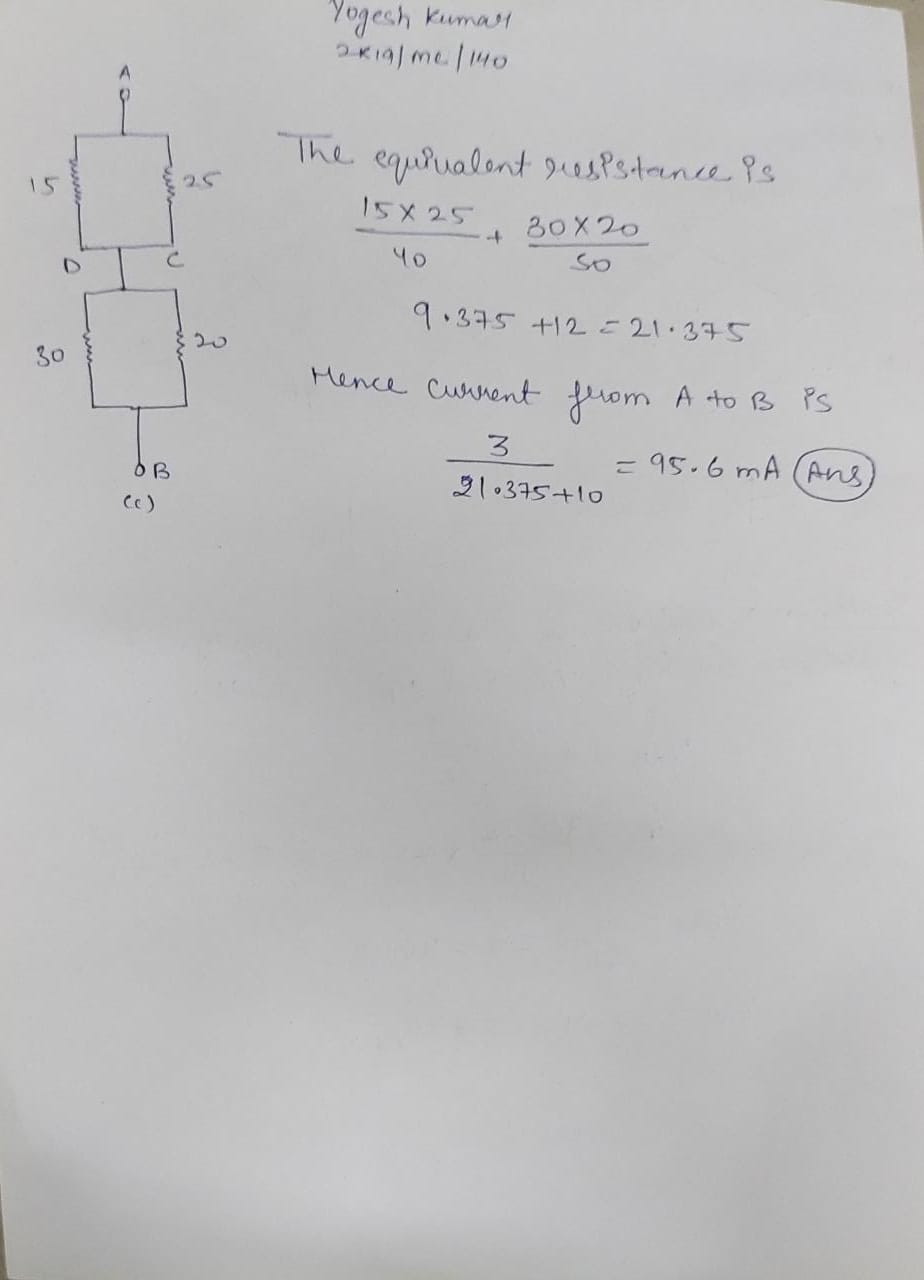 Yogesh Kumar
2K19/me/140
A
15
25
D
C
30
20
B
(c)
The equivalent resistance is
15 X 25 / 40 + 30 X 20 / 50
9.375 +12 = 21.375
Hence current from A to B is
3 / 21.375+10 = 95.6 mA (Ans)